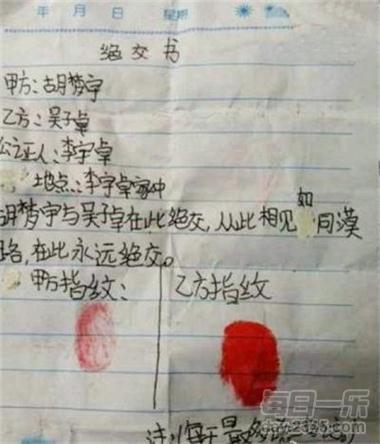 年 月 日 星期
绝交书
甲方:胡梦宇
乙方:吴子卓
公证人:李宇卓
地点:李宇卓家中
胡梦宇与吴子卓在此绝交,从此相见如同漠
路,在此永远绝交。
甲方指纹: 乙方指纹
注:
每日一乐
day2345.com